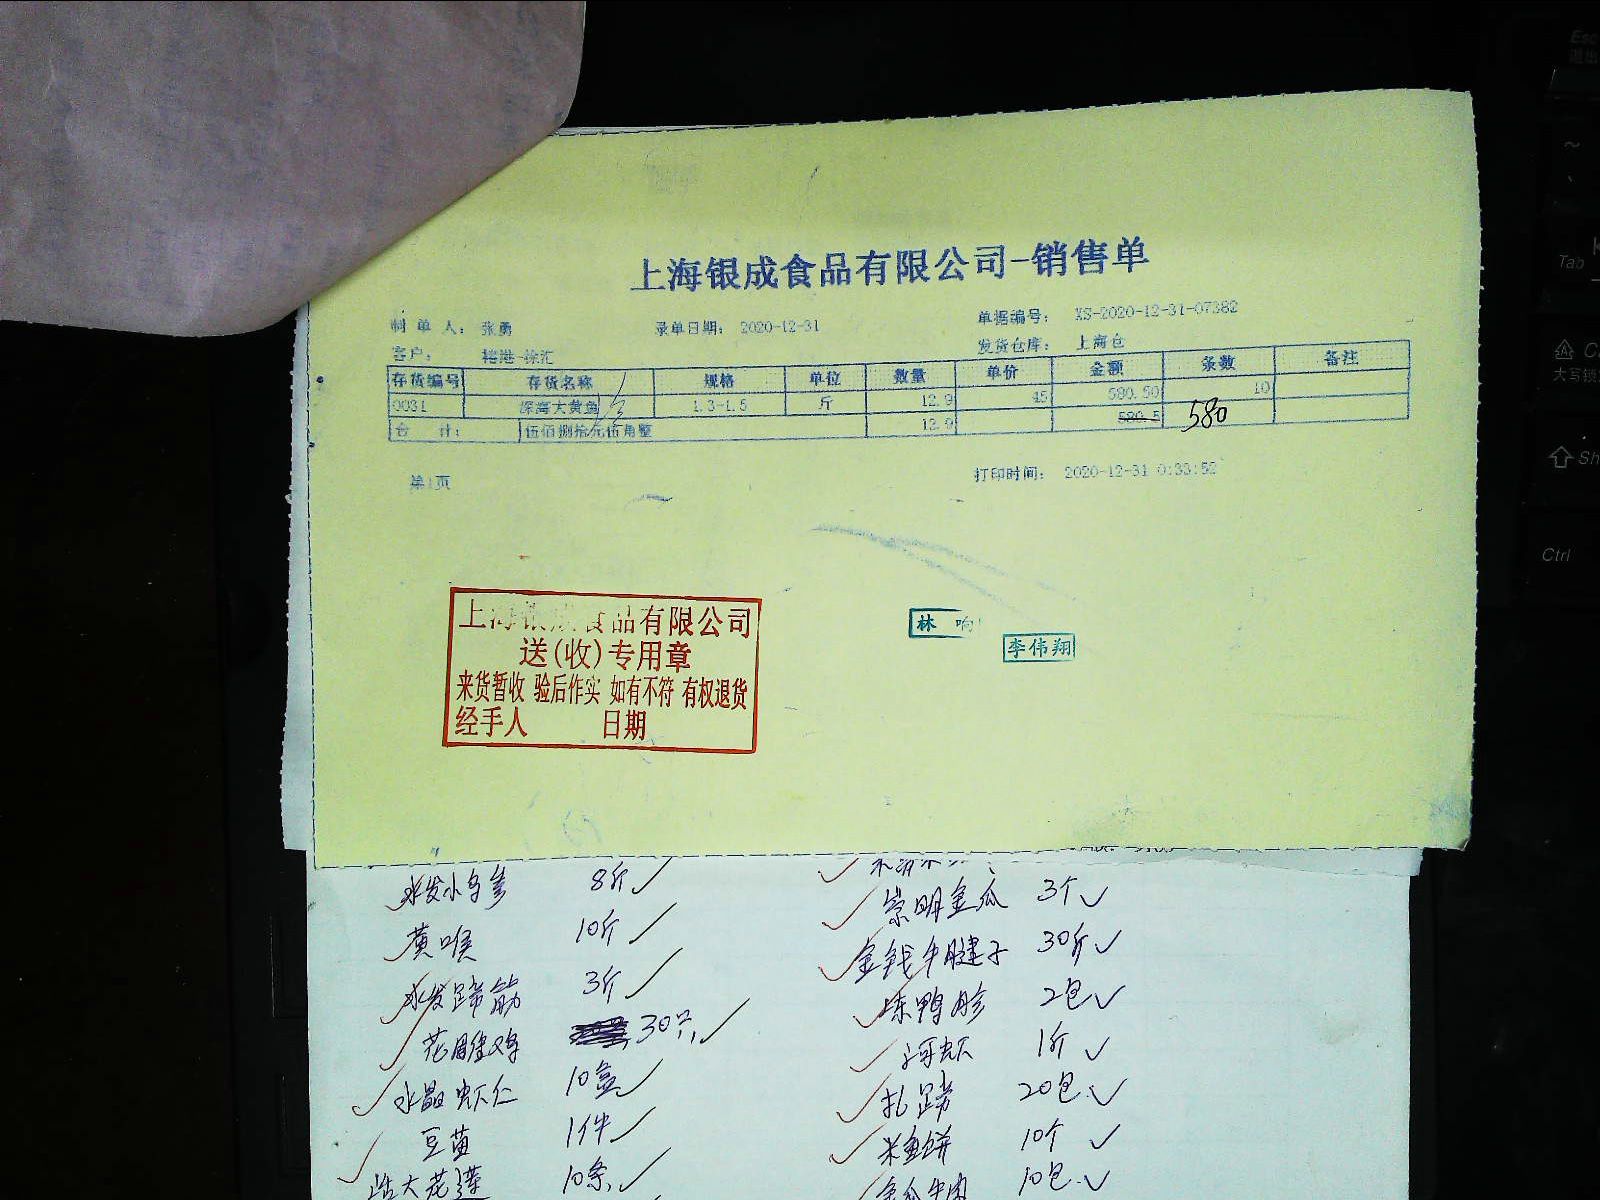 上海银成食品有限公司-销售单
制单人： 张勇 录单日期： 2020-12-31 单据编号： XS-2020-12-31-07382
客户： 徐汇 发货仓库： 上海仓
存货编号 存货名称 规格 单位 数量 单价 金额 条数 备注
0031 深海大黄鱼 1.3-1.5 斤 12.9 45 580.50 10
合 计： 伍佰捌拾元伍角整 12.9 580.5 580
第1页 打印时间： 2020-12-31 0:33:52
上海银成食品有限公司
送(收)专用章
来货暂收 验后作实 如有不符 有权退货
经手人 日期
林 响
李伟翔
水发小乌参 8斤
黄喉 10斤
水发蹄筋 3斤
花雕鸡 30只
水晶虾仁 10盒
豆苗 1件
大花莲 10条
崇明金瓜 3个
金钱牛腱子 30斤
冻鸭胗 2包
河虾 1斤
扎蹄 20包
米鱼饼 10个
牛肉 10包
Esc
退出
Tab
大写锁
Sh
Ctrl